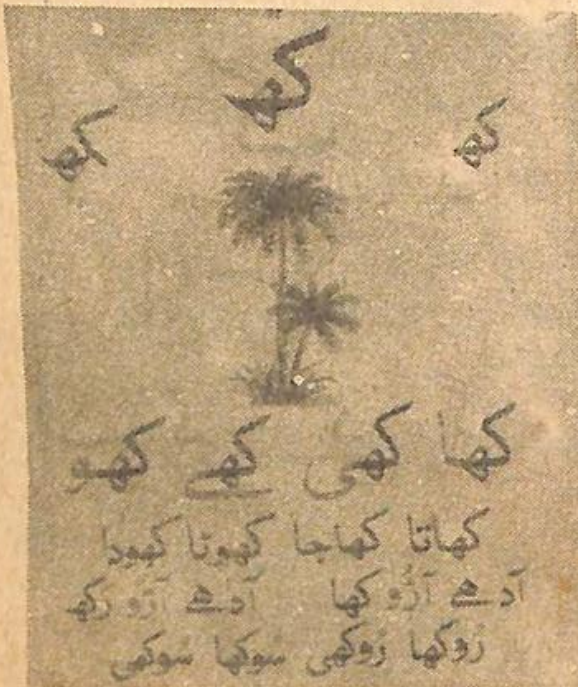 کھ
کھ کھ
کھا کھی کھے کھو
کھاتا کھاجا کھوتا کھودا
آدھے آڑو کھا آدھے آڑو رکھ
رُوکھا رُوکھی سُوکھا سُوکھی